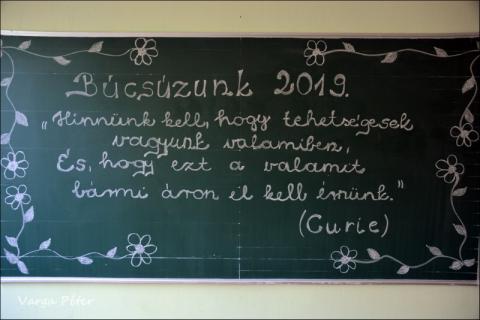 Búcsúzunk 2019.
„Hinnünk kell, hogy tehetségesek
vagyunk valamiben,
És, hogy ezt a valamit
bármi áron el kell érnünk."
(Curie)
Varga Péter